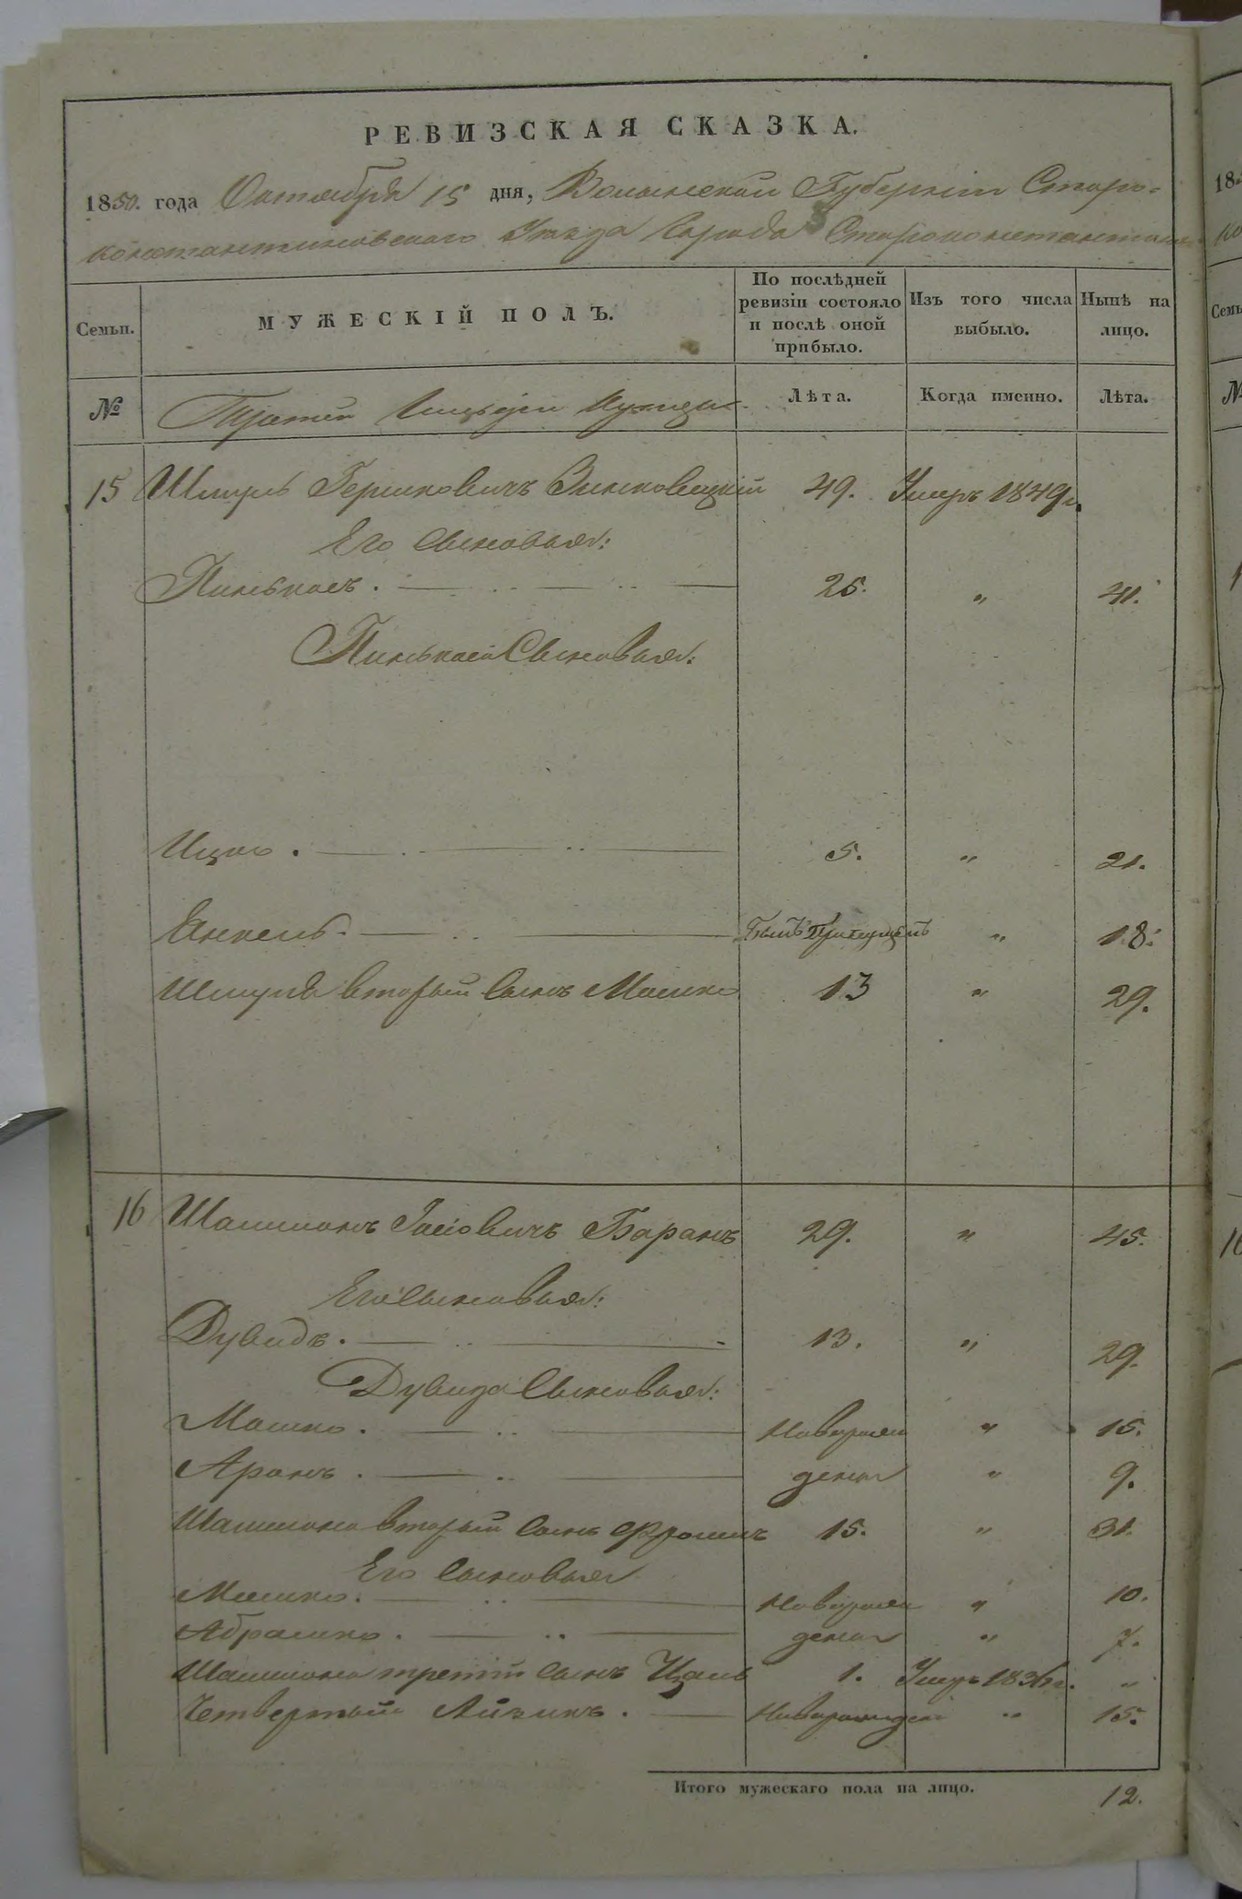 РЕВИЗСКАЯ СКАЗКА.
1850. года Октября 15 дня, Волынской Губерніи Старо-
константиновскаго Уезда Города Староконстантинова
Семьи.
МУЖЕСКІЙ ПОЛЪ.
По послѣдней ревизіи состояло и послѣ оной прибыло.
Изъ того числа выбыло.
Нынѣ на лицо.
№
Лѣта.
Когда именно.
Лѣта.
15 Шмуль Гершковичъ Зиньковецкій 49. Умеръ 1849г.
Его Сыновья:
Пинькасъ. 25. " 41.
Пинькаса Сыновья:
Ицко. 5. " 21.
Янкель. Былъ Пропущенъ " 18.
Шмуля вторый сынъ Мошко 13 " 29.
16 Шлиомонъ Баранъ 29. " 45.
Его Сыновья:
Дувидъ. 13. " 29.
Дувида Сыновья:
Мошко. Новорож " 15.
Аронъ. дены " 9.
вторый сынъ Фроимъ 15. " 31.
Его Сыновья
Мошко. Новорож " 10.
Абрамко. дены " 7.
третій сынъ 1. Умеръ 1836г. "
Четвертый Айзикъ. Новорожден " 15.
Итого мужескаго пола на лицо. 12.
18
Семь
№